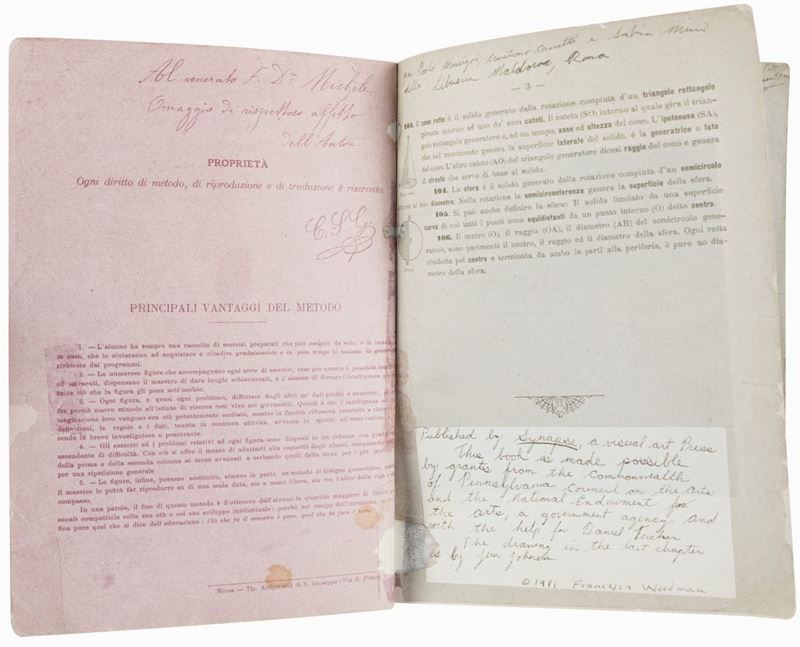 Al venerato F. Dre Michele
Omaggio di rispettoso affetto
dell'Autore
PROPRIETÀ
Ogni diritto di metodo, di riproduzione e di traduzione è riservato.
PRINCIPALI VANTAGGI DEL METODO
1. — L'alunno ha sempre una raccolta di esercizi preparati che può eseguir da solo, o in iscuola
in casa, che lo aiuteranno ad acquistare e ribadire gradatamente e in poco tempo le nozioni di geometria
richieste dai programmi.
2. — Le numerose figure che accompagnano ogni serie di esercizi, rese per questo è possibile
ed attraenti, dispensano il maestro di dare lunghi schiarimenti, e l'alunno di sforzare l'intelligenza per
finire ciò che la figura gli pone sott'occhio.
3. — Ogni figura, e quasi ogni problema, differisce dagli altri ne' dati gradua e numerici, ed
tre perciò nuovo stimolo all'istinto di ricerca così vivo nei giovanetti. Quindi è che l'intelligenza
maginazione loro vengono con ciò potentemente eccitate, mentre la facoltà riflessiva, costretta a
definizioni, le regole e i dati, tenuta in continua attività, avvezza lo spirito all'osservazione
rende in breve investigatore e penetrante.
4. — Gli esercizi ed i problemi relativi ad ogni figura sono disposti in tre colonne con gradazione
ascendente di difficoltà. Con ciò si offre il mezzo di adattarli alla capacità degli alunni, eseguendo
della prima o della seconda colonna ai meno avanzati e serbando quelli della terza per i più
per una ripetizione generale
5. — Le figure, infine, possono sostituire, almeno in parte, un metodo di disegno geometrico,
il maestro le potrà far riprodurre su di una scala data, sia a mano libera, sia con l'aiuto della riga
compasso.
In una parola, il fine di questo metodo è d'ottenere dall'alunno la quantità maggiore di lavoro
sonale compatibile colla sua età e col suo sviluppo intellettuale; perchè nel campo dell'istruzione
fica pure quel che si dice dell'educazione: Ciò che fa il maestro è poco, quel che fa fare è tutto.
Roma — Tip. Artigianelli di S. Giuseppe
on Paolo Missigoi, Cristiano Casetti e Sabina Mirri
della Libreria Maldoror, Roma
— 3 —
103. Il cono retto è il solido generato dalla rotazione compiuta d'un triangolo rettangolo
girante intorno ad uno de' suoi cateti. Il cateto (SO) intorno al quale gira il trian-
golo rettangolo generatore è, ad un tempo, asse ed altezza del cono. L'ipotenusa (SA),
che nel movimento genera la superficie laterale del solido, è la generatrice o lato
del cono. L'altro cateto (AO) del triangolo generatore dicesi raggio del cono e genera
il circolo che serve di base al solido.
104. La sfera è il solido generato dalla rotazione compiuta di un semicircolo
intorno al suo diametro. Nella rotazione la semicirconferenza genera la superficie della sfera.
105. Si può anche definire la sfera: Il solido limitato da una superficie
curva di cui tutti i punti sono equidistanti da un punto interno (O) detto centro.
106. Il centro (O), il raggio (OA), il diametro (AB) del semicircolo gene-
ratore, sono parimenti il centro, il raggio ed il diametro della sfera. Ogni retta
condotta pel centro e terminata da ambo le parti alla periferia, è pure un dia-
metro della sfera.
Published by Synapse, a visual art Press
This book is made possible
by grants from the Commonwealth
of Pennsylvania Council on the Arts
and the National Endowment for
the arts, a government agency and
with the help for Daniel Tucker
The drawing in the last chapter
is by Jen Johnson
© 1981 Francesca Woodman